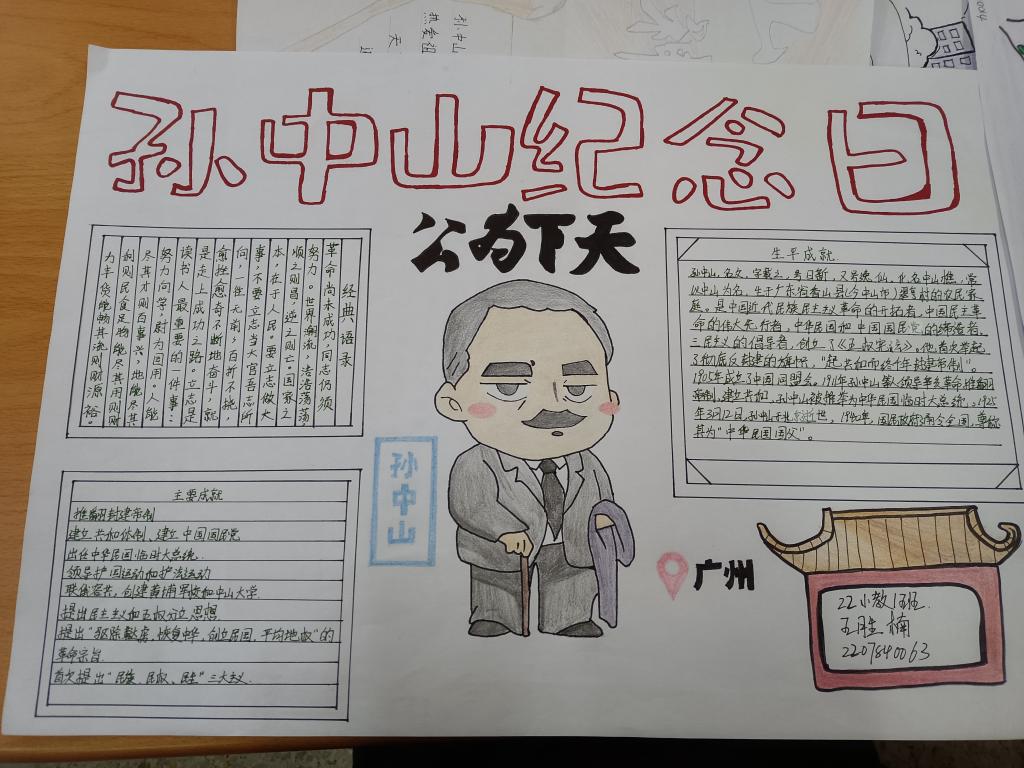 孙中山纪念日
天下为公
经典语录
革命尚未成功,同志仍须
努力。世界潮流,浩浩荡荡
顺之则昌逆之则亡。国家之
本,在于人民。要立志做大
事,不要立志当大官。吾志所
向,一往无前,百折不挠,
愈挫愈奋不断地奋斗,就
是走上成功之路。立志是
读书人最重要的一件事:
努力向学,蔚为国用。人能
尽其才则百事兴,地能尽其
利则民食足物能尽其用则财
力丰货能畅其流则财源裕。
生平成就
孙中山,名文,字载之,号日新,又号逸仙,化名中山樵,常
以中山为名。生于广东省香山县(今中山市)翠亨村的农民家
庭。是中国近代民族民主义革命的开拓者,中国民主革
命的伟大先行者,中华民国和中国国民党的缔造者,
三民主义的倡导者,创立了《五权宪法》。他首次举起
了彻底反封建的旗帜,“起共和而终千年封建帝制”。
1905年成立了中国同盟会。1911年孙中山等人领导辛亥革命推翻
帝制,建立共和,孙中山被推举为中华民国临时大总统,1925
年3月12日,孙中山逝世,1940年,国民政府通令全国,尊称
其为“中华民国国父”。
孙中山
主要成就
推翻封建帝制
建立共和体制、建立中国国民党
出任中华民国临时大总统
领导护国运动和护法运动
联俄容共,创建黄埔军校和中山大学
提出民主主义和五权分立思想
提出“驱除鞑虏,恢复中华,创立民国,平均地权”的
革命宗旨
首次提出“民族、民权、民生”三大主义
广州
22小教伍班
五胜楠
2207840063
孙中山
热爱祖
天